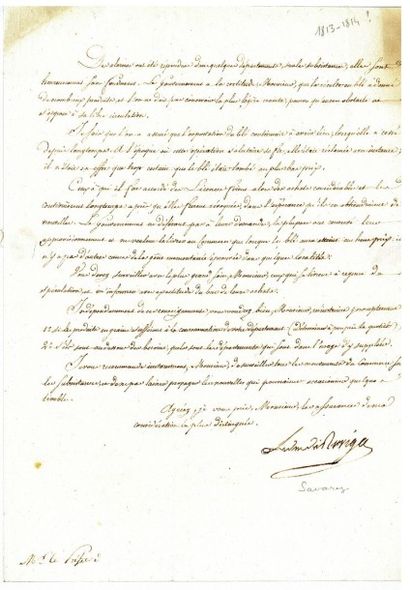 1813-1814 !
Des alarmes ont été répandues dans quelques départements, sur les subsistances, elles sont
heureusement sans fondement. Le Gouvernement a la certitude, Monsieur, que la récolte en blé a donné
de nombreux produits et l'on ne doit pas concevoir la plus légère crainte, pourvu qu'aucun obstacle ne
s'oppose à sa libre circulation.
Je sais que l'on a assuré que l'exportation du blé continuait à avoir lieu, lorsqu'elle a cessé
depuis longtemps. A l'époque où cette opération salutaire se fit, elle était réclamée avec instance;
il n'était en effet que trop certain que le blé était tombé au plus bas prix.
Ceux à qui il fut accordé des Licences firent alors des achats considérables et les
continuèrent longtemps après qu'elles furent révoquées, dans l'espérance qu'ils en obtiendraient de
nouvelles. Le Gouvernement ne déférera pas à leur demande, la plupart ont conservé leurs
approvisionnements et ne voulant les livrer au commerce que lorsque le blé aura atteint un haut prix; il
n'y a pas d'autre cause de la gêne momentanée éprouvée dans quelques localités.
Vous devez surveiller avec le plus grand soin, Monsieur, ceux qui se livrent à ce genre de
spéculation, et m'informer avec exactitude du but de leurs achats.
Indépendamment de ces renseignements, vous voudrez bien, Monsieur, m'instruire promptement
1° si les produits en grains suffisent à la consommation de votre département (déterminer à peu près la quotité)
2° s'ils sont au dessous des besoins, quels sont les départements qui sont dans l'usage d'y suppléer.
Je vous recommande instamment, Monsieur, de surveiller tous les mouvements du commerce sur
les subsistances et de ne pas laisser propager des nouvelles qui pourraient occasionner quelque
trouble.
Agréez, je vous prie, Monsieur, les assurances de ma
considération la plus distinguée.
Le duc de Rovigo
Savary
Mr. le Préfet d